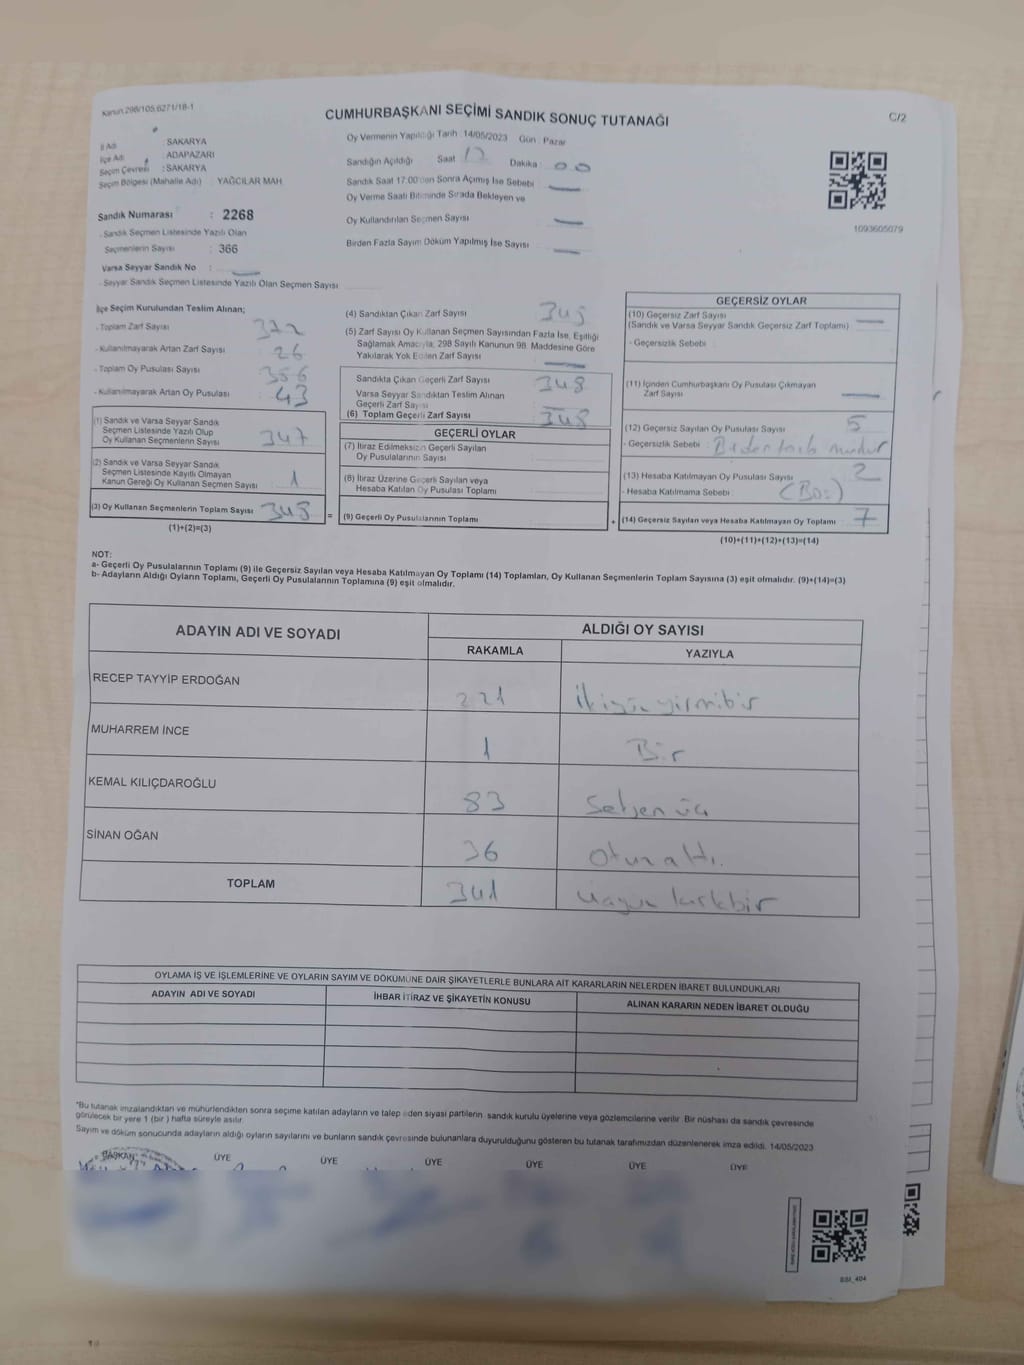 Kanun 298/105,6271/18-1
CUMHURBAŞKANI SEÇİMİ SANDIK SONUÇ TUTANAĞI
C/2
İl Adı : SAKARYA
İlçe Adı : ADAPAZARI
Seçim Çevresi : SAKARYA
Seçim Bölgesi (Mahalle Adı) : YAĞCILAR MAH.
Sandık Numarası : 2268
- Sandık Seçmen Listesinde Yazılı Olan
Seçmenlerin Sayısı : 366
Varsa Seyyar Sandık No :
- Seyyar Sandık Seçmen Listesinde Yazılı Olan Seçmen Sayısı
Oy Vermenin Yapıldığı Tarih 14/05/2023 Gün : Pazar
Sandığın Açıldığı Saat 17 Dakika : 00
Sandık Saat 17:00'den Sonra Açılmış İse Sebebi
Oy Verme Saati Bitiminde Sırada Bekleyen ve
Oy Kullandırılan Seçmen Sayısı
Birden Fazla Sayım Döküm Yapılmış İse Sayısı
1093605079
İlçe Seçim Kurulundan Teslim Alınan;
- Toplam Zarf Sayısı
- Kullanılmayarak Artan Zarf Sayısı 26
- Toplam Oy Pusulası Sayısı
- Kullanılmayarak Artan Oy Pusulası 43
(1) Sandık ve Varsa Seyyar Sandık
Seçmen Listesinde Yazılı Olup
Oy Kullanan Seçmenlerin Sayısı 347
(2) Sandık ve Varsa Seyyar Sandık
Seçmen Listesinde Kayıtlı Olmayan
Kanun Gereği Oy Kullanan Seçmen Sayısı 1
(3) Oy Kullanan Seçmenlerin Toplam Sayısı 348
(1)+(2)=(3)
(4) Sandıktan Çıkan Zarf Sayısı
(5) Zarf Sayısı Oy Kullanan Seçmen Sayısından Fazla İse, Eşitliği
Sağlamak Amacıyla, 298 Sayılı Kanunun 98. Maddesine Göre
Yakılarak Yok Edilen Zarf Sayısı
Sandıkta Çıkan Geçerli Zarf Sayısı 348
Varsa Seyyar Sandıktan Teslim Alınan
Geçerli Zarf Sayısı
(6) Toplam Geçerli Zarf Sayısı 348
GEÇERLİ OYLAR
(7) İtiraz Edilmeksizin Geçerli Sayılan
Oy Pusulalarının Sayısı
(8) İtiraz Üzerine Geçerli Sayılan veya
Hesaba Katılan Oy Pusulası Toplamı
= (9) Geçerli Oy Pusulalarının Toplamı +
GEÇERSİZ OYLAR
(10) Geçersiz Zarf Sayısı
(Sandık ve Varsa Seyyar Sandık Geçersiz Zarf Toplamı)
- Geçersizlik Sebebi
(11) İçinden Cumhurbaşkanı Oy Pusulası Çıkmayan
Zarf Sayısı
(12) Geçersiz Sayılan Oy Pusulası Sayısı 5
- Geçersizlik Sebebi :
(13) Hesaba Katılmayan Oy Pusulası Sayısı 2
- Hesaba Katılmama Sebebi
(14) Geçersiz Sayılan veya Hesaba Katılmayan Oy Toplamı 7
(10)+(11)+(12)+(13)=(14)
NOT:
a- Geçerli Oy Pusulalarının Toplamı (9) ile Geçersiz Sayılan veya Hesaba Katılmayan Oy Toplamı (14) Toplamları, Oy Kullanan Seçmenlerin Toplam Sayısına (3) eşit olmalıdır. (9)+(14)=(3)
b- Adayların Aldığı Oyların Toplamı, Geçerli Oy Pusulalarının Toplamına (9) eşit olmalıdır.
ADAYIN ADI VE SOYADI
ALDIĞI OY SAYISI
RAKAMLA
YAZIYLA
RECEP TAYYİP ERDOĞAN 221 ikiyüz yirmibir
MUHARREM İNCE 1 Bir
KEMAL KILIÇDAROĞLU 83 Seksen üç
SİNAN OĞAN 36 Otuz altı.
TOPLAM 341 Üçyüz kırkbir
OYLAMA İŞ VE İŞLEMLERİNE VE OYLARIN SAYIM VE DÖKÜMÜNE DAİR ŞİKAYETLERLE BUNLARA AİT KARARLARIN NELERDEN İBARET BULUNDUKLARI
ADAYIN ADI VE SOYADI
İHBAR İTİRAZ VE ŞİKAYETİN KONUSU
ALINAN KARARIN NEDEN İBARET OLDUĞU
*Bu tutanak imzalandıktan ve mühürlendikten sonra seçime katılan adayların ve talep eden siyasi partilerin sandık kurulu üyelerine veya gözlemcilerine verilir. Bir nüshası da sandık çevresinde
görülecek bir yere 1 (bir) hafta süreyle asılır.
Sayım ve döküm sonucunda adayların aldığı oyların sayılarını ve bunların sandık çevresinde bulunanlara duyurulduğunu gösteren bu tutanak tarafımızdan düzenlenerek imza edildi. 14/05/2023
BAŞKAN ÜYE ÜYE ÜYE ÜYE ÜYE ÜYE
SSI_404